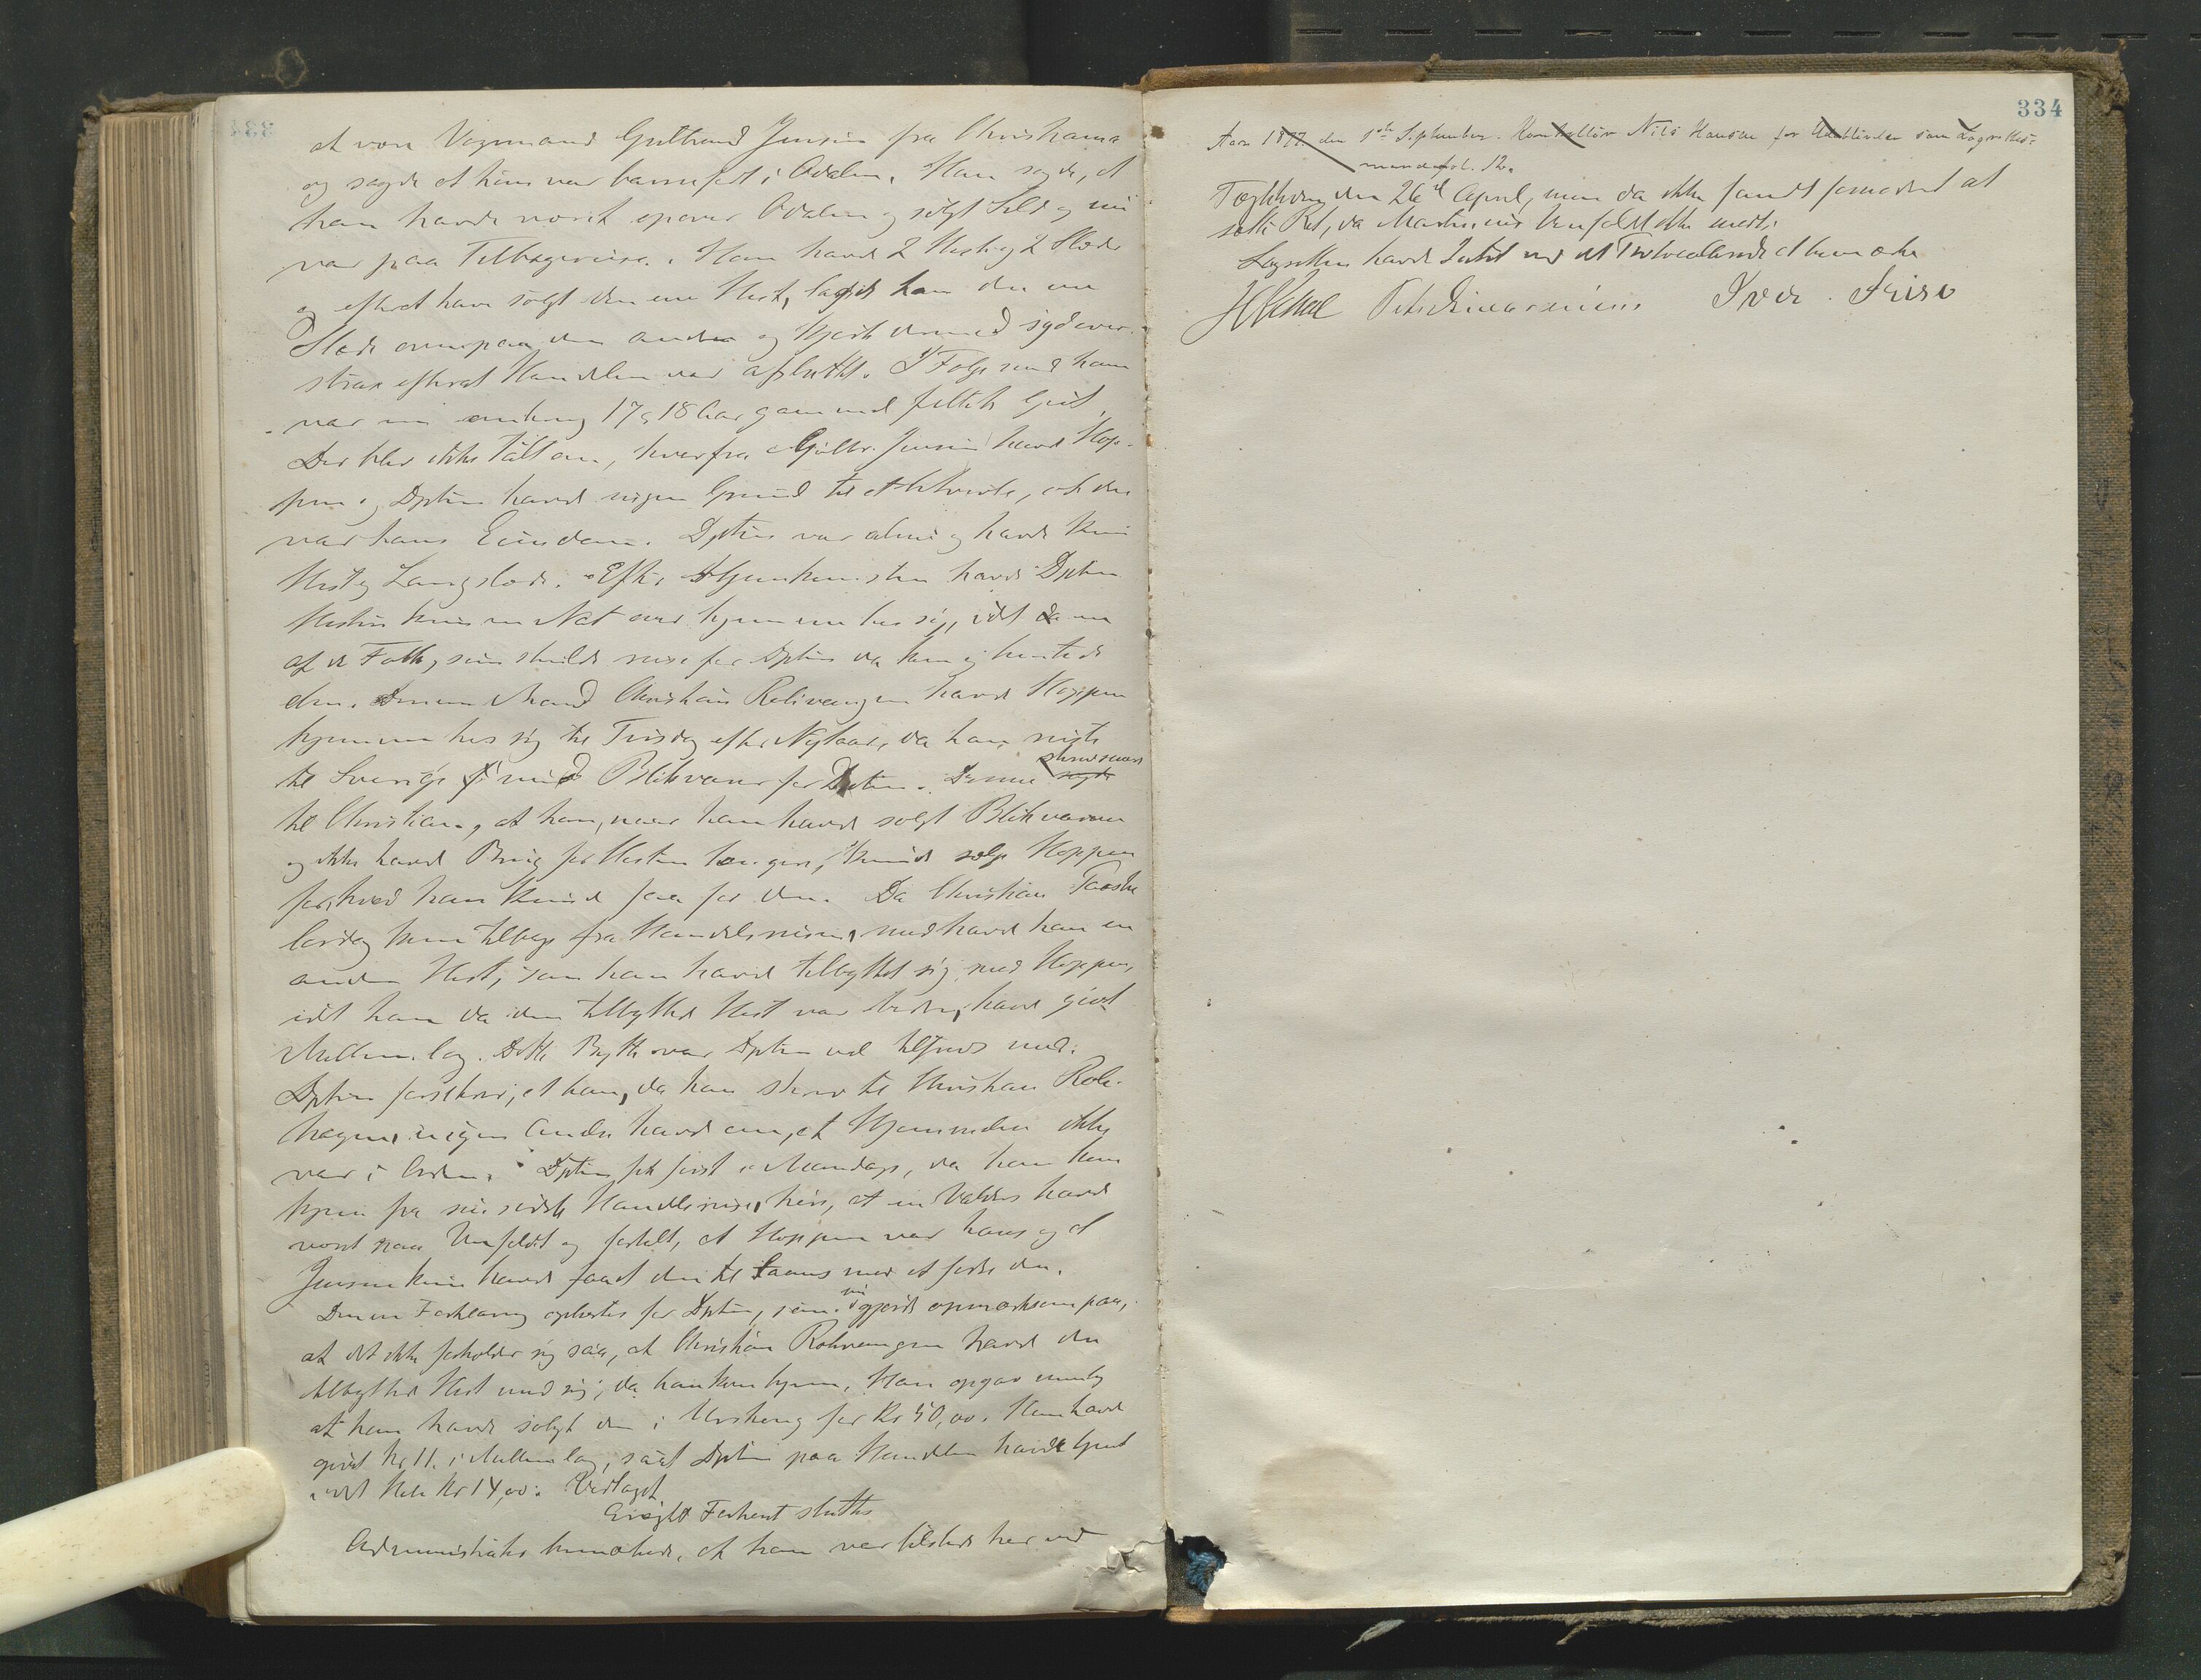 at være Vognmand Gulbrand Jensen fra Christiania
og sagde at han var barnefødt i Odalen. Han sagde, at
han havde været opover Odalen og solgt Sild og nu
var paa Tilbagereise. Han havde 2 Heste og 2 Slæder
og efterat have solgt den ene Hest, lagde han den ene
Slæde ovenpaa den anden og kjørte dermed sydover
strax efterat Handelen var afsluttet. I Følge med ham
var en omkring 17 a 18 Aar gammel Gut.
Der blev ikke talt om, hvorfra Gulbr. Jensen havde Hop-
pen og Dpten havde ingen Grund til at betvivle, at den
var hans Eiendom. Dptus var alene og havde kun
Hest og Langslæde. Efter Hjemkomsten havde Dptus
Hesten kun en Nat over hjemme hos sig, idet en
af de Folk, som skulde reise for Dptus da kom og hentede
den. Denne Mand Christian Rolivangen havde Hoppen
hjemme hos sig til Tirsdag efter Nytaar, da han reiste
til Sverige med Blikvarer for Dptus. Denne skrev
til Christian, at han, naar han havde solgt Blikvarerne
og ikke havde Brug for Hesten længere, kunde sælge Hoppen
for hvad han kunde faa for den. Da Christian Paaske
lørdag kom tilbage fra Handelsreisen, medhavde han en
anden Hest, som han havde tilbyttet sig med Hoppen,
idet han da den tilbyttede Hest var bedre, havde givet
Mellemlag. Dette Bytte var Dptus vel tilfreds med.
Dptus forsikrer, at han, da han skrev til Christian Roli-
vangen, ingen Anelse havde om, at Hjemmelen ikke
var i Orden. Dptus fik først i Mandags, da han kom
hjem fra sin sidste Handelsreise, høre, at en Valdris havde
været paa Unfeldt og fortalt, at Hoppen var hans og at
Jensen kun havde faaet den til Laans mod at fodre den.
Denne Forklaring oplæstes for Dptus, som nu gjorde opmærksom paa,
at det ikke forholder sig saa, at Christian Rolivangen havde den
tilbyttede Hest med sig, da han kom hjem. Han opgav nemlig
at han havde solgt den i Urskoug for Kr 50,00. Han havde
givet Kr 11. i Mellemlag, saa at Dptus paa Handelen havde tjent
i det Hele Kr 14,00. Vedtaget
Eragtet Forhøret sluttes
Administrator bemærkede, at han var tilstede her ved
334
Aar 1877 den 1ste September. Nils Hansen for som Lagrettes-
mand
Tægthvden den 26de April, men da ikke fandt fornødent at
sætte Ret, da Martinius Unfeldt ikke mødte.
Lagretten havde Intet ved det Protocollerede at bemærke
Iver